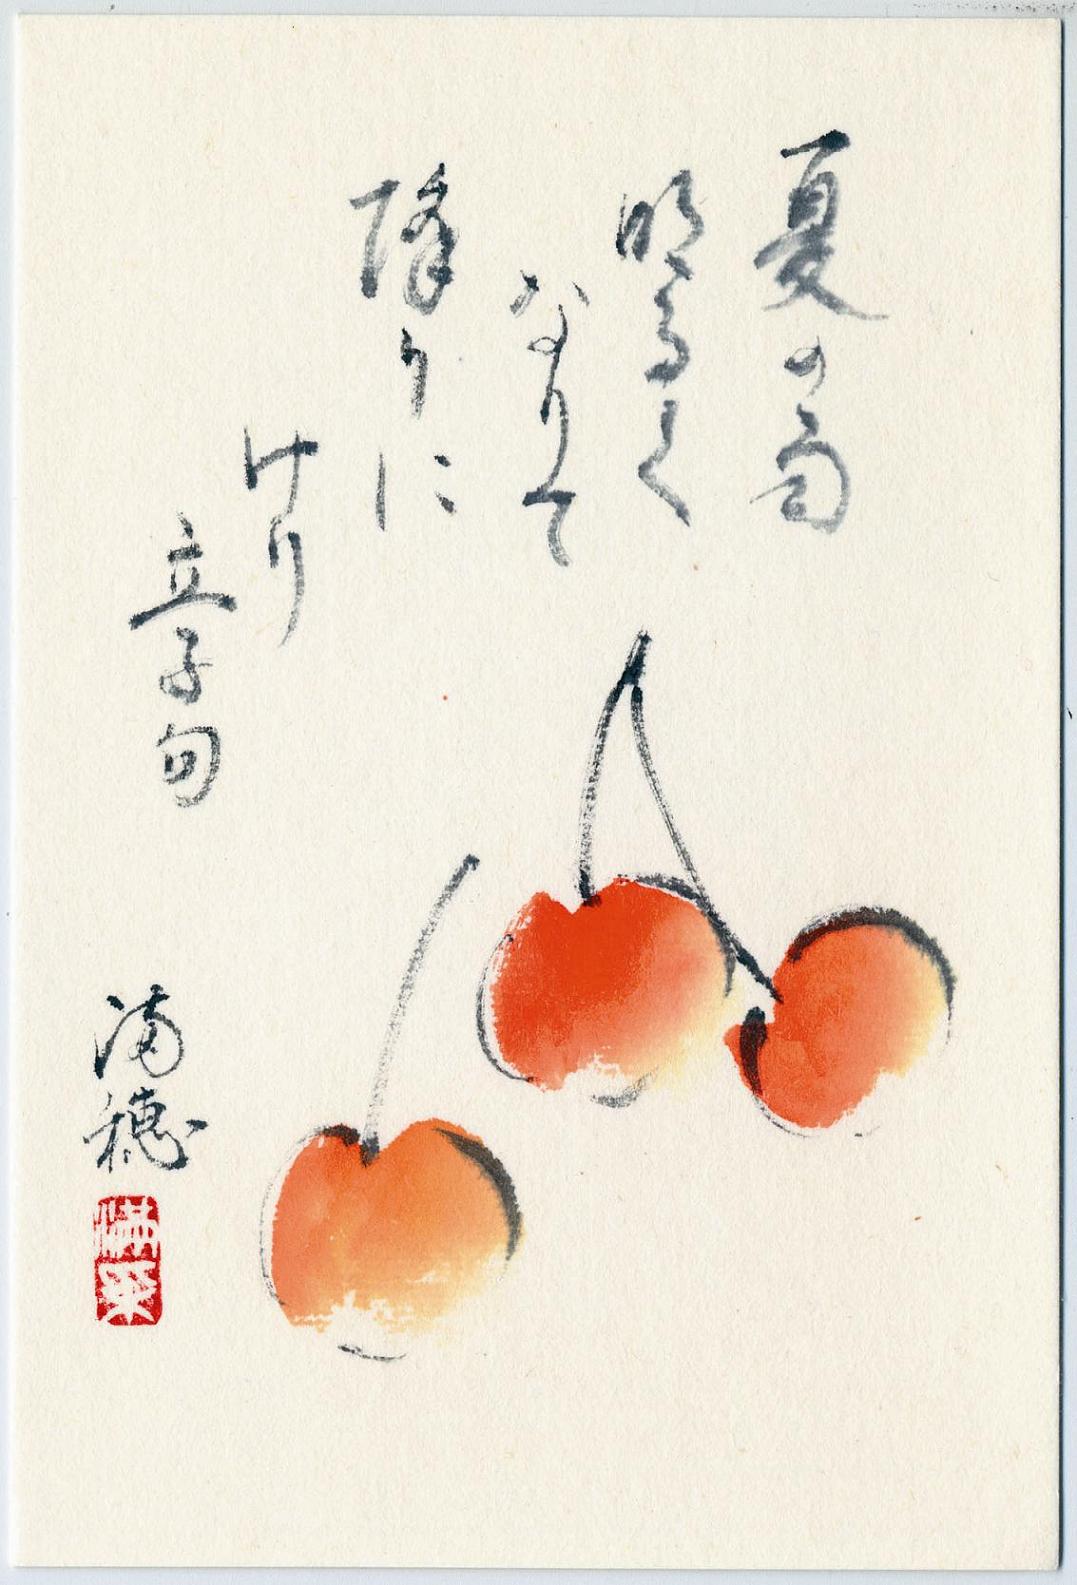 夏の雨
明るく
なりて
降りに
けり
立子句
満穂